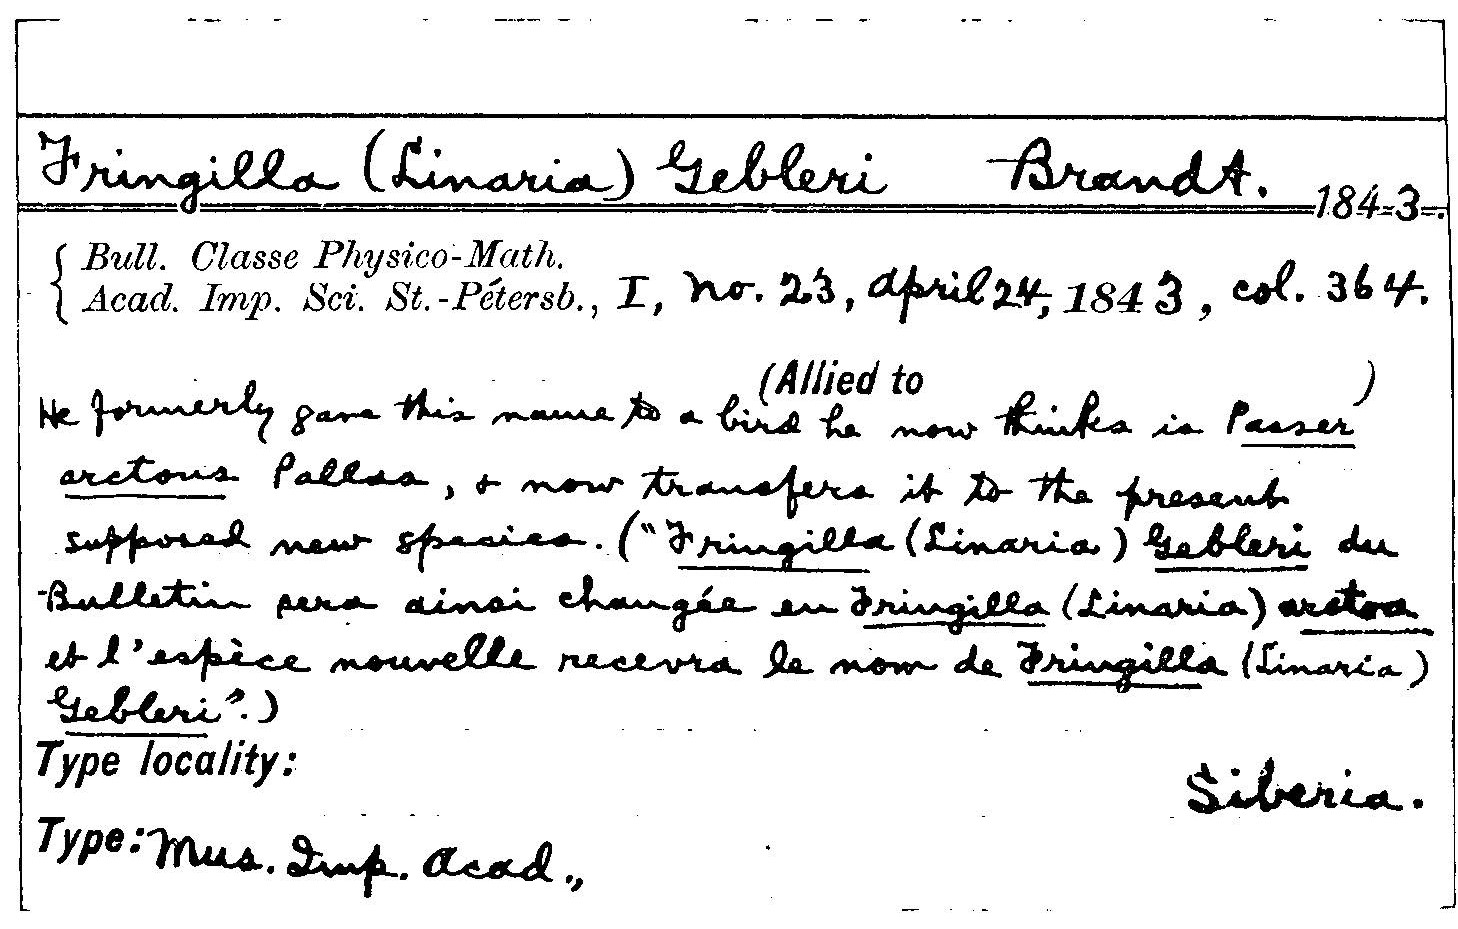 Fringilla (Linaria) Gebleri Brandt. 1843.
Bull. Classe Physico-Math.
Acad. Imp. Sci. St.-Pétersb., I, no. 23, April 24, 1843, col. 364.
(Allied to )
He formerly gave this name to a bird he now thinks is Passer
arctous Pallas, & now transfers it to the present
supposed new species. ("Fringilla (Linaria) Gebleri du
Bulletin sera ainsi changée en Fringilla (Linaria) arctoa
et l'espèce nouvelle recevra le nom de Fringilla (Linaria)
Gebleri".)
Type locality:
Siberia.
Type: Mus. Imp. Acad.,